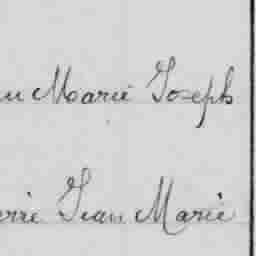 u Marie Joseph
erre Jean Marie